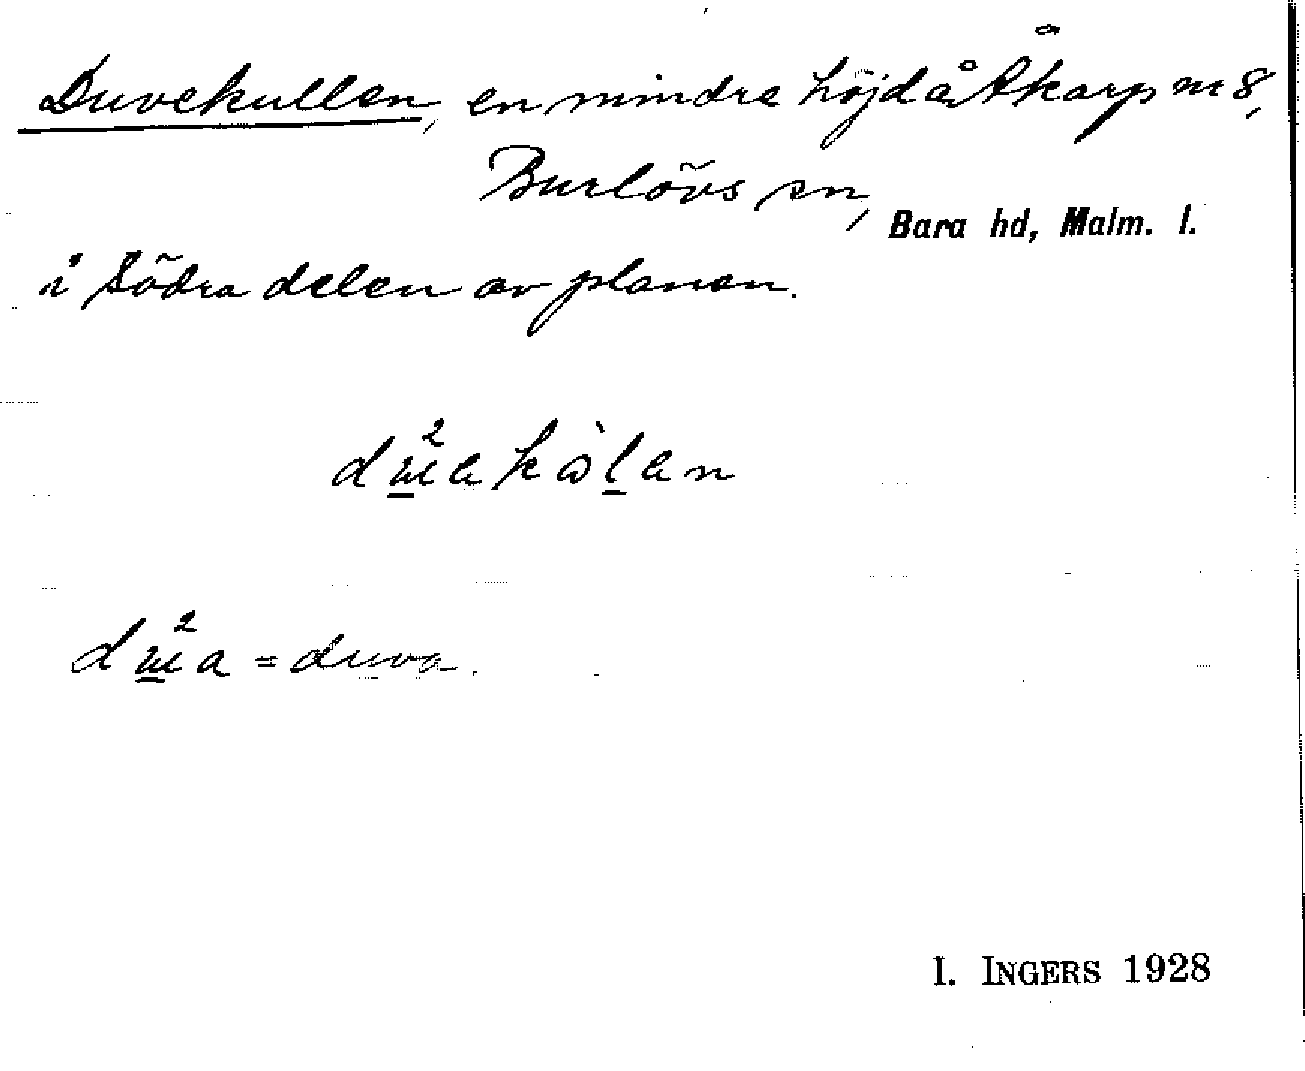 Duvekullen, en mindre höjd å Åkarp nr 8,
Burlövs sn,
Bara hd, Malm. l.
i södra delen av planen.
= duva.
I. INGERS 1928